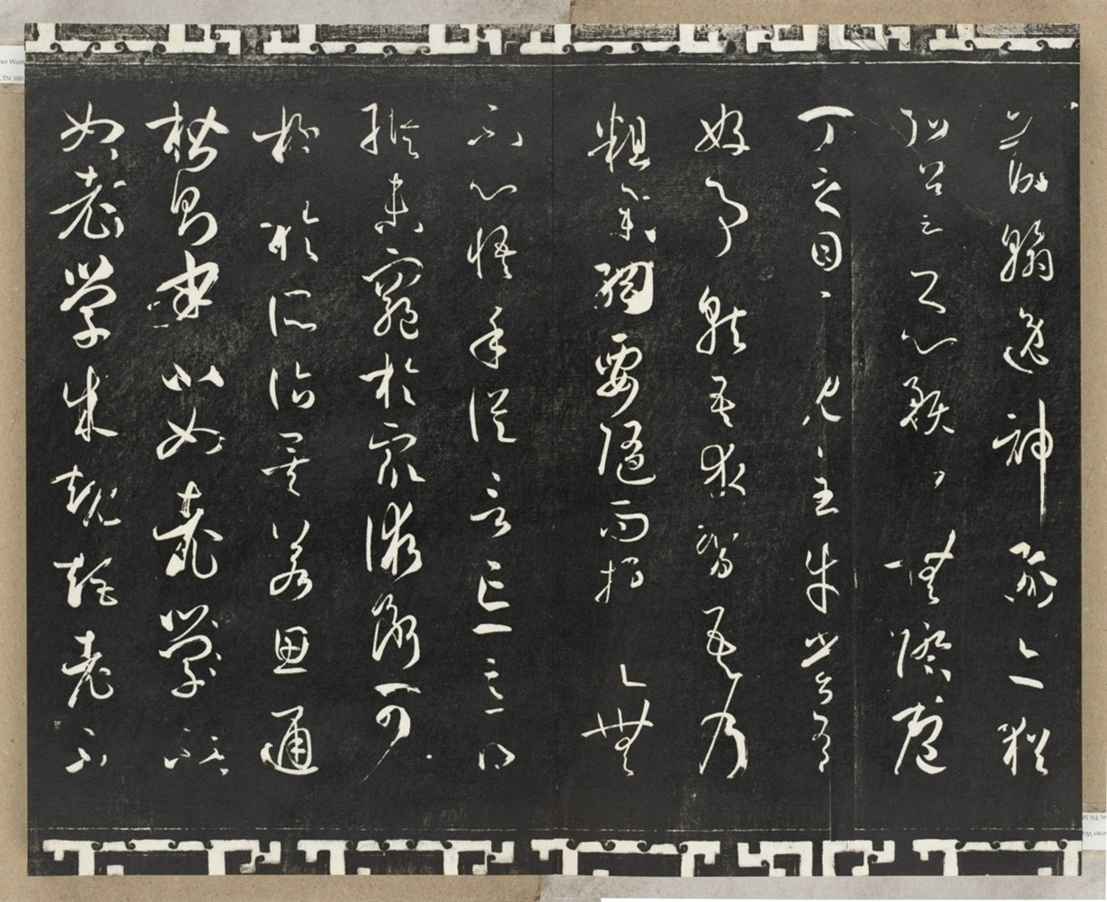 落翰逸神飛亦猶
弘羊之心預乎無際庖
丁之目不見全牛嘗有
好事就吾求習吾乃
粗舉綱要隨而授之無
不心悟手從言忘意得
縱未窮於眾術斷可
極於所詣矣若思通
楷則不如老學少不
如老學成規矩老不